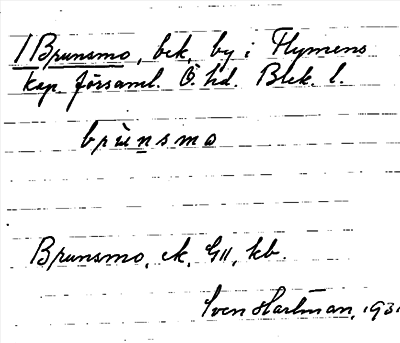 1 Brunsmo, bek. by i Flymens
kap. församl. Ö. hd. Blek. l.
brùnsmo
Brunsmo, ek, GII, kb.
Sven Hartman, 1931